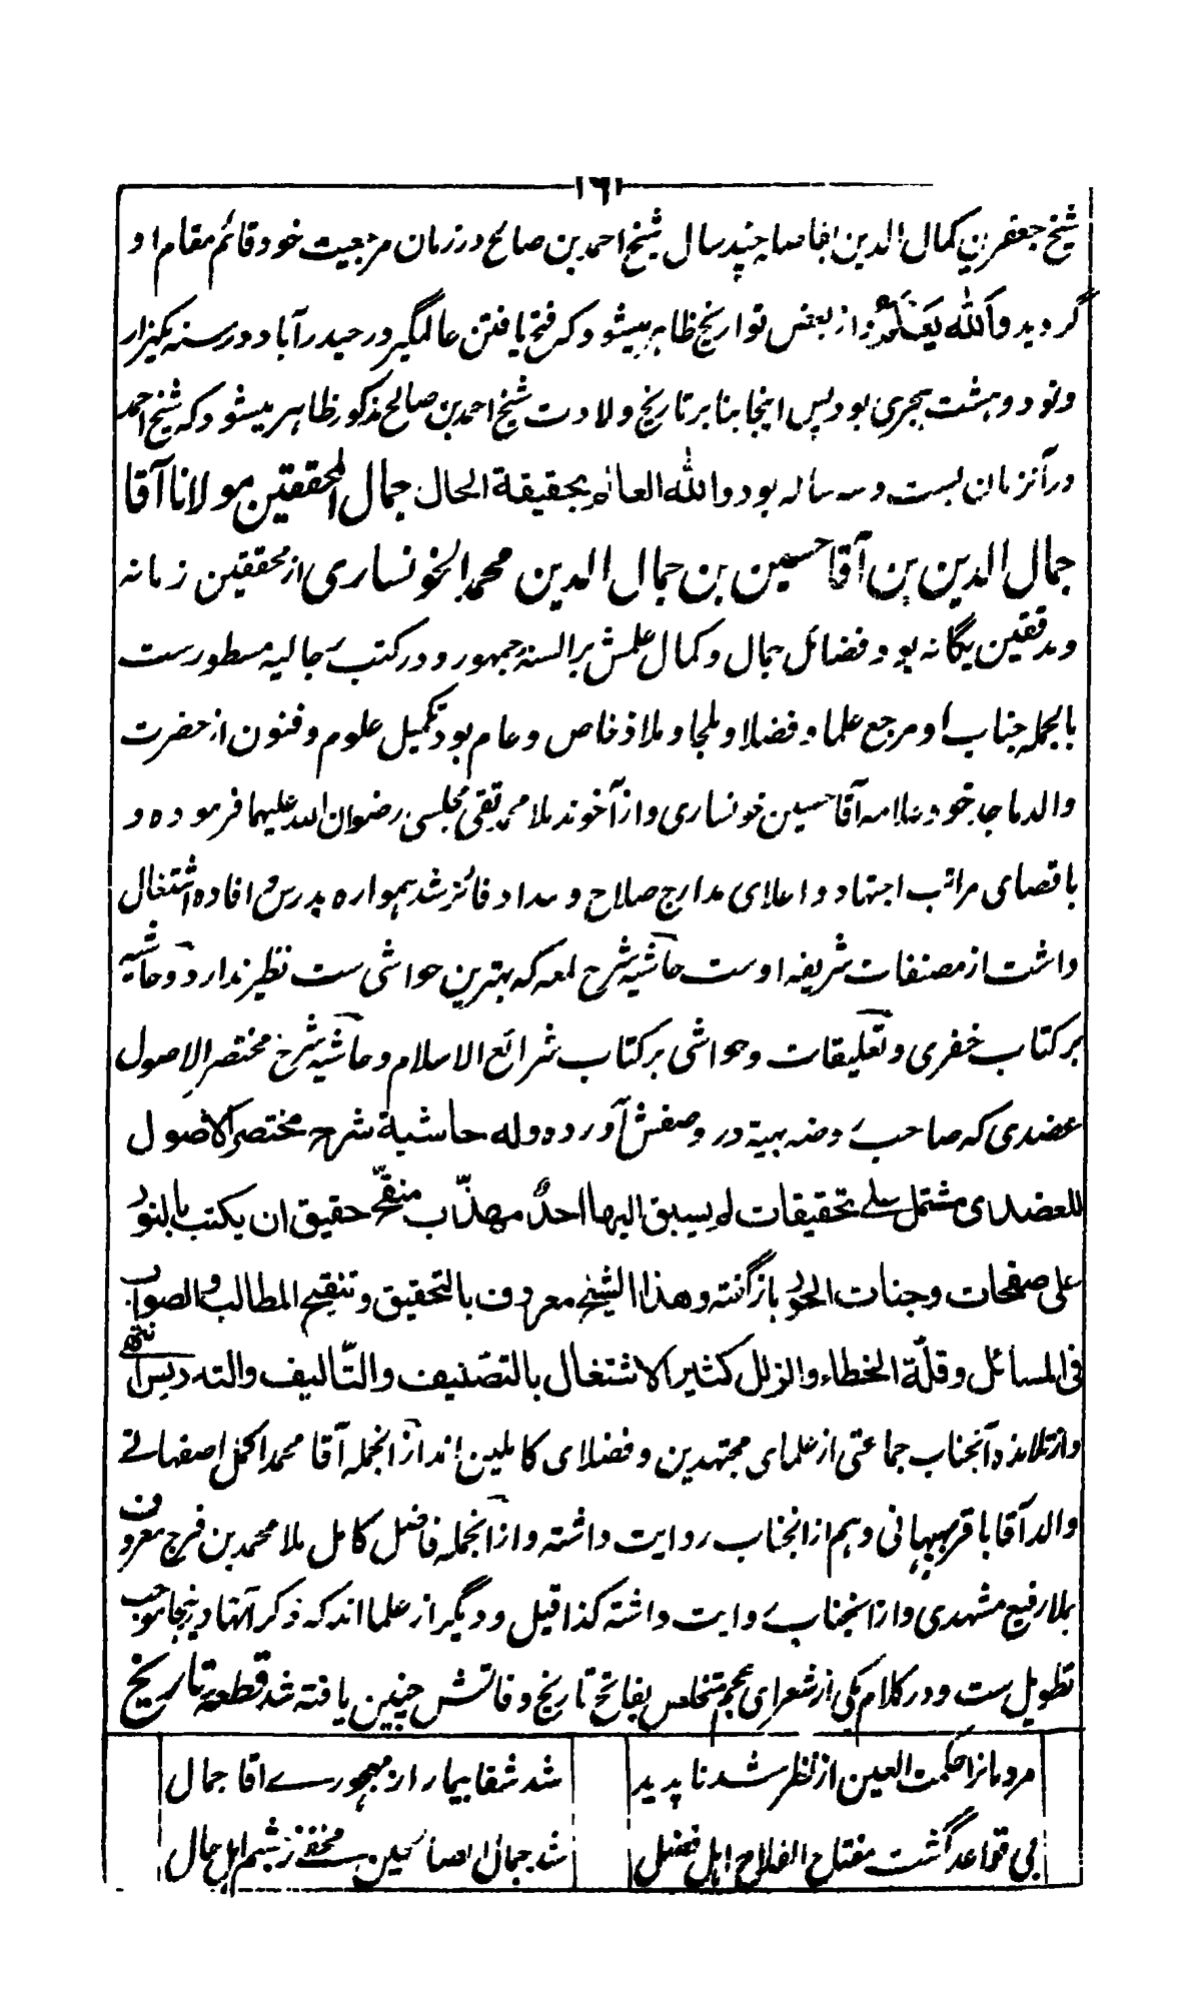 ١٦١
شیخ جعفر بن کمال الدین بفاصله چند سال شیخ احمد بن صالح در زمان مرجعیت خود قائم مقام او
گردید والله یعلم و از بعض تواریخ ظاهر میشود که فتح یافتن عالمگیر در حیدرآباد در سنه یکهزار
ونود و هشت هجری بود پس اینجا بنا بر تاریخ ولادت شیخ احمد بن صالح مذکور ظاهر میشود که شیخ احمد
در آنزمان بست و سه ساله بود والله العالم بحقیقة الحال جمال المحققین مولانا آقا
جمال الدین بن آقا حسین بن جمال الدین محمد الخونساری از محققین زمانه
و مدققین یگانه بود فضائل جمال و کمال علمش بر السنه جمهور و در کتب رجالیه مسطورست
بالجمله جناب او مرجع علما و فضلا و ملجا و ملاذ خاص و عام بود تکمیل علوم و فنون از حضرت
والد ماجد خود علامه آقا حسین خونساری و از آخوند ملا محمد تقی مجلسی رضوان الله علیهما فرموده و
باقصای مراتب اجتهاد و اعلای مدارج صلاح و سداد فائز شد همواره بدرس و افاده اشتغال
داشت از مصنفات شریفه اوست حاشیه شرح لمعه که بهترین حواشی ست نظیر ندارد و حاشیه
بر کتاب خفری و تعلیقات و حواشی بر کتاب شرائع الاسلام و حاشیه شرح مختصر الاصول
عضدی که صاحب روضه بهیة در وصفش آورده وله حاشیة شرح مختصر الاصول
للعضدی مشتمل علی تحقیقات لم یسبق الیها احدٌ مهذّب منقّح حقیق ان یکتب بالنور
علی صفحات وجنات الحور بازگفته وهذا الشیخ معروف بالتحقیق و تنقیح المطالب والصواب
فی المسائل وقلّة الخطاء والزلل کثیر الاشتغال بالتصنیف والتّالیف والتدریس انتهی
و از تلامذه آنجناب جماعتی از علمای مجتهدین و فضلای کاملین اند از آنجمله آقا محمد اکمل اصفهانی
والد آقا باقر بهبهانی و هم از انجناب روایت داشته و از آنجمله فاضل کامل ملا محمد بن فرج معروف
بملا رفیع مشهدی و از انجناب روایت داشته کذا قیل و دیگر از علما اند که ذکر آنها درینجا موجب
تطویل ست و در کلام یکی از شعرای عجم متخلص بفاتح تاریخ وفاتش چنین یافته شد قطعه تاریخ
مردمانرا حکمت العین از نظر شد ناپدید شد شفا بیمار از مهجوری اقا جمال
بی قواعد گشت مفتاح الفلاح اهل فضل شد جمال الصالحین مخفی ز چشم اهل حال